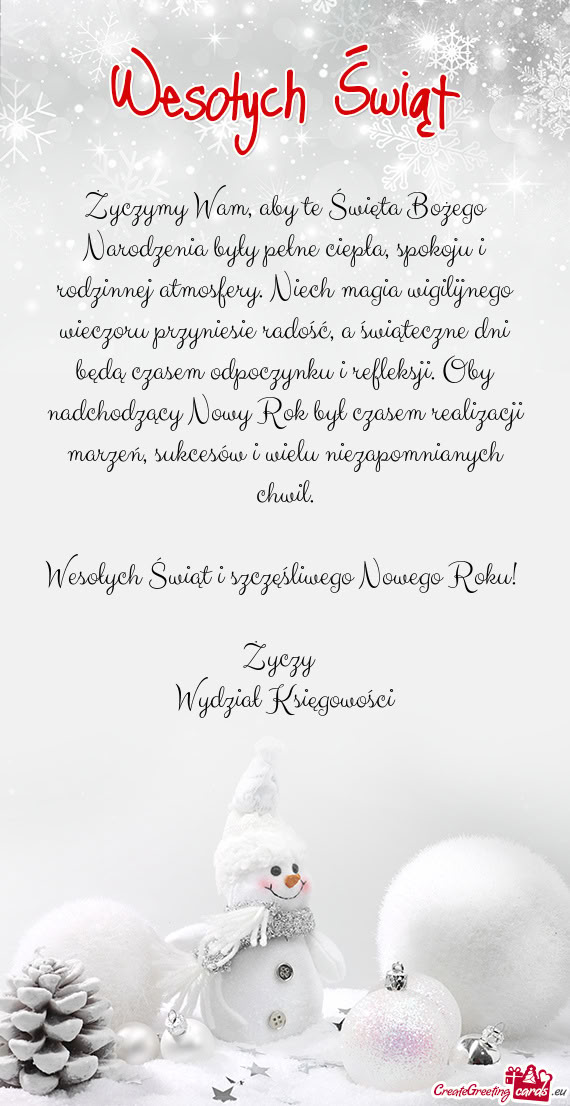 Wesołych Świąt
Życzymy Wam, aby te Święta Bożego
Narodzenia były pełne ciepła, spokoju i
rodzinnej atmosfery. Niech magia wigilijnego
wieczoru przyniesie radość, a świąteczne dni
będą czasem odpoczynku i refleksji. Oby
nadchodzący Nowy Rok był czasem realizacji
marzeń, sukcesów i wielu niezapomnianych
chwil.
Wesołych Świąt i szczęśliwego Nowego Roku!
Życzy
Wydział Księgowości
CreateGreeting cards .eu